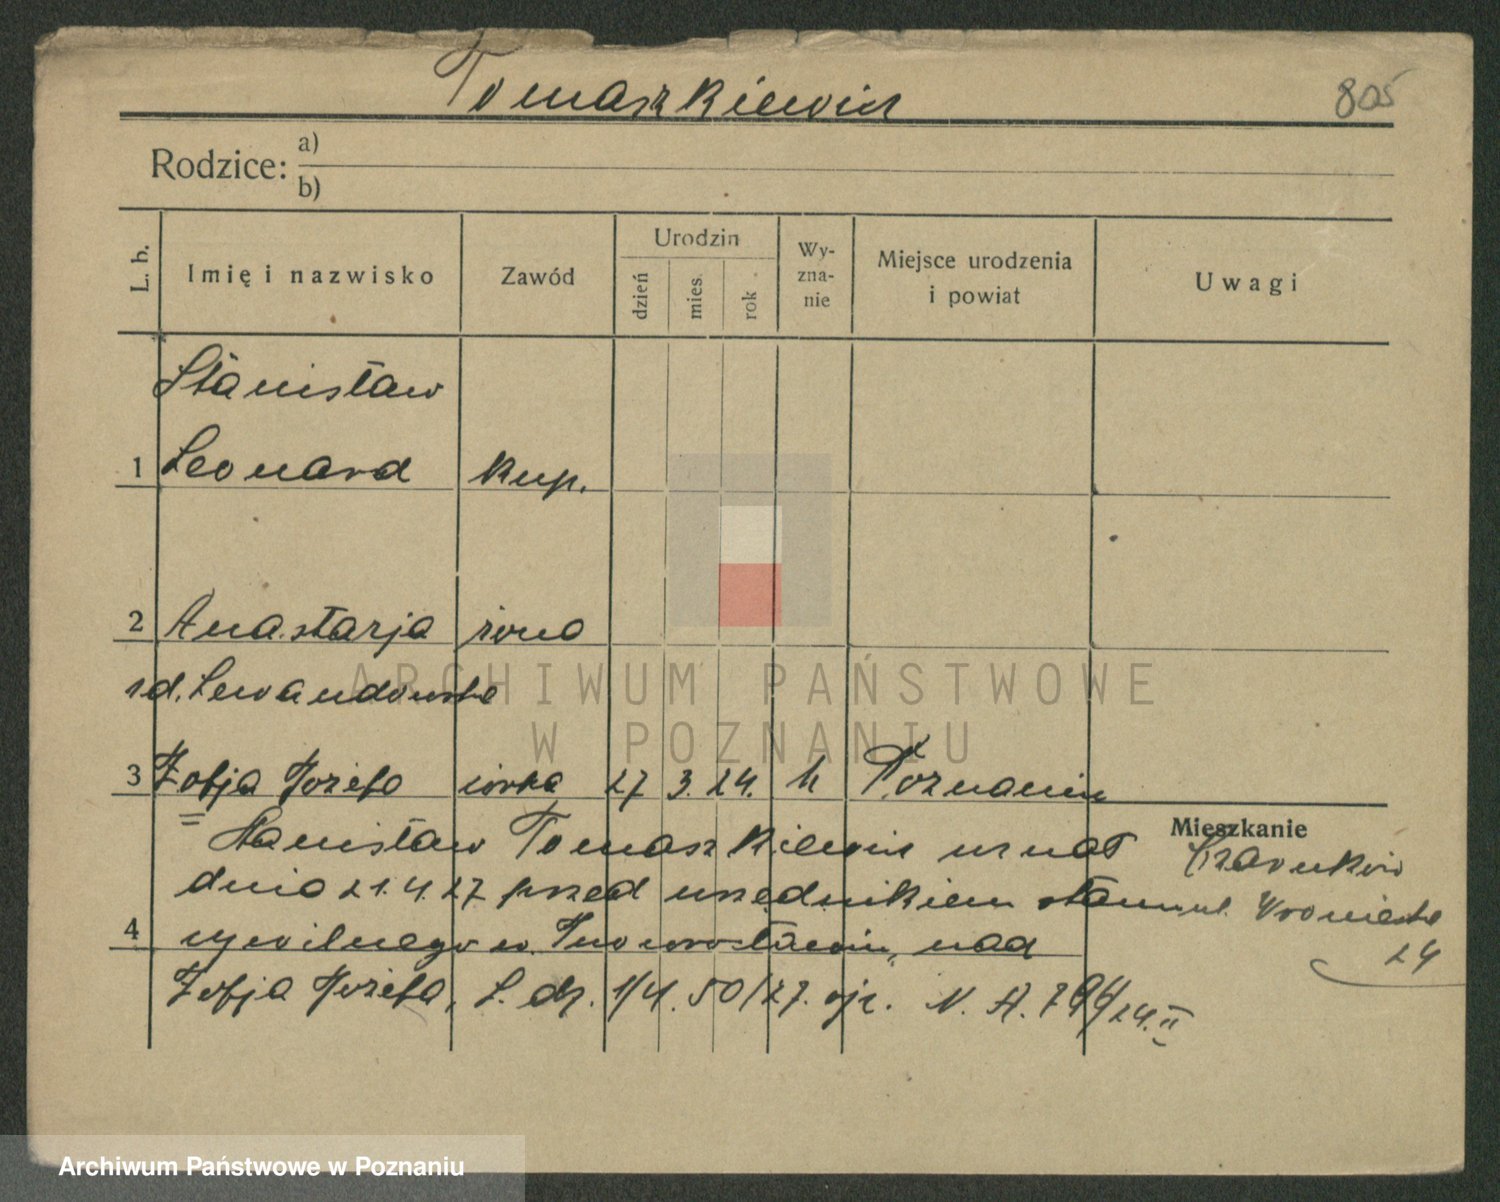 Tomaszkiewicz
805
Rodzice: a)
b)
L. b.
Imię i nazwisko
Zawód
Urodzin
dzień
mies.
rok
Wy-
zna-
nie
Miejsce urodzenia
i powiat
Uwagi
Stanisław
1 Leonard kup.
2 Anastazja żona
rd. Lewandowska
3 Zofja Józefa córka 27 3. 24. k Poznaniu
Stanisław Tomaszkiewicz uznał
dnia 21.4.27 przed urzędnikiem stanu
4 cywilnego w Inowrocławiu, nad
Zofja Józefa, L. dz. 1/4. 50/27. N. A.
Mieszkanie
Czarnków
ul. Wroniecka
24
ARCHIWUM PAŃSTWOWE
W POZNANIU
Archiwum Państwowe w Poznaniu